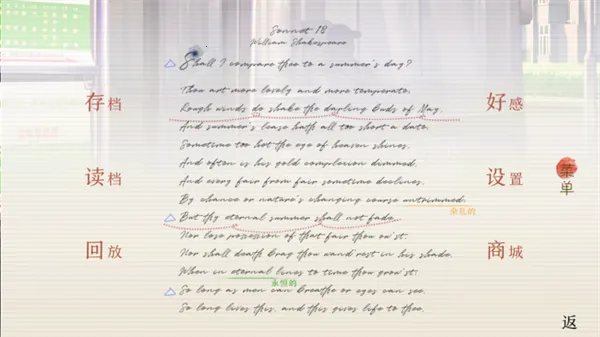 Sonnet 18
William Shakespeare
Shall I compare thee to a summer's day?
Thou art more lovely and more temperate.
Rough winds do shake the darling buds of May,
And summer's lease hath all too short a date.
Sometime too hot the eye of heaven shines,
And often is his gold complexion dimmed,
And every fair from fair sometime declines,
By chance or nature's changing course untrimmed.
杂乱的
But thy eternal summer shall not fade,
Nor lose possession of that fair thou ow'st.
Nor shall death brag thou wand'rest in his shade,
When in eternal lines to time thou grow'st.
永恒的
So long as men can breathe or eyes can see,
So long lives this, and this gives life to thee.
存档
读档
回放
好感
设置
商城
菜单
返